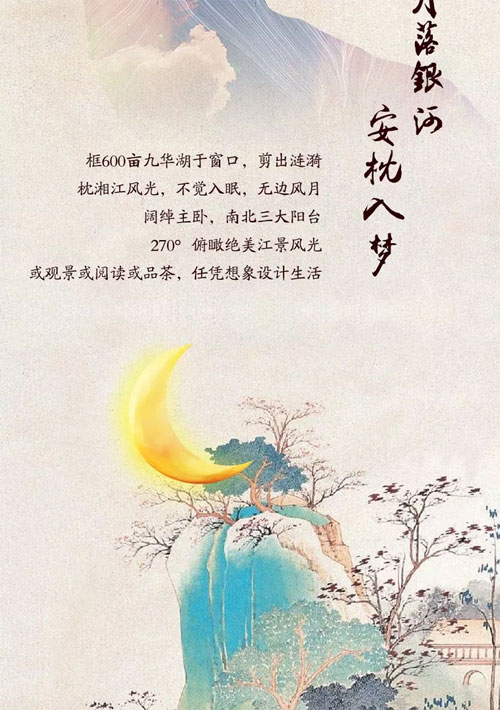 月落銀河
安枕入梦
框600亩九华湖于窗口，剪出涟漪
枕湘江风光，不觉入眠，无边风月
阔绰主卧，南北三大阳台
270° 俯瞰绝美江景风光
或观景或阅读或品茶，任凭想象设计生活